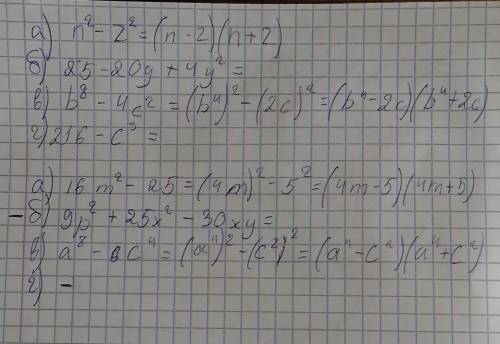 а) n² - 2² = (n - 2)(n + 2)
б) 25 - 20y + 4y² =
в) b⁸ - 4c² = (b⁴)² - (2c)² = (b⁴ - 2c)(b⁴ + 2c)
г) 216 - c³ =
а) 16m² - 25 = (4m)² - 5² = (4m - 5)(4m + 5)
- б) 9p² + 25x² - 30xy =
в) a⁸ - c⁴ = (a⁴)² - (c²)² = (a⁴ - c²)(a⁴ + c²)
г) -